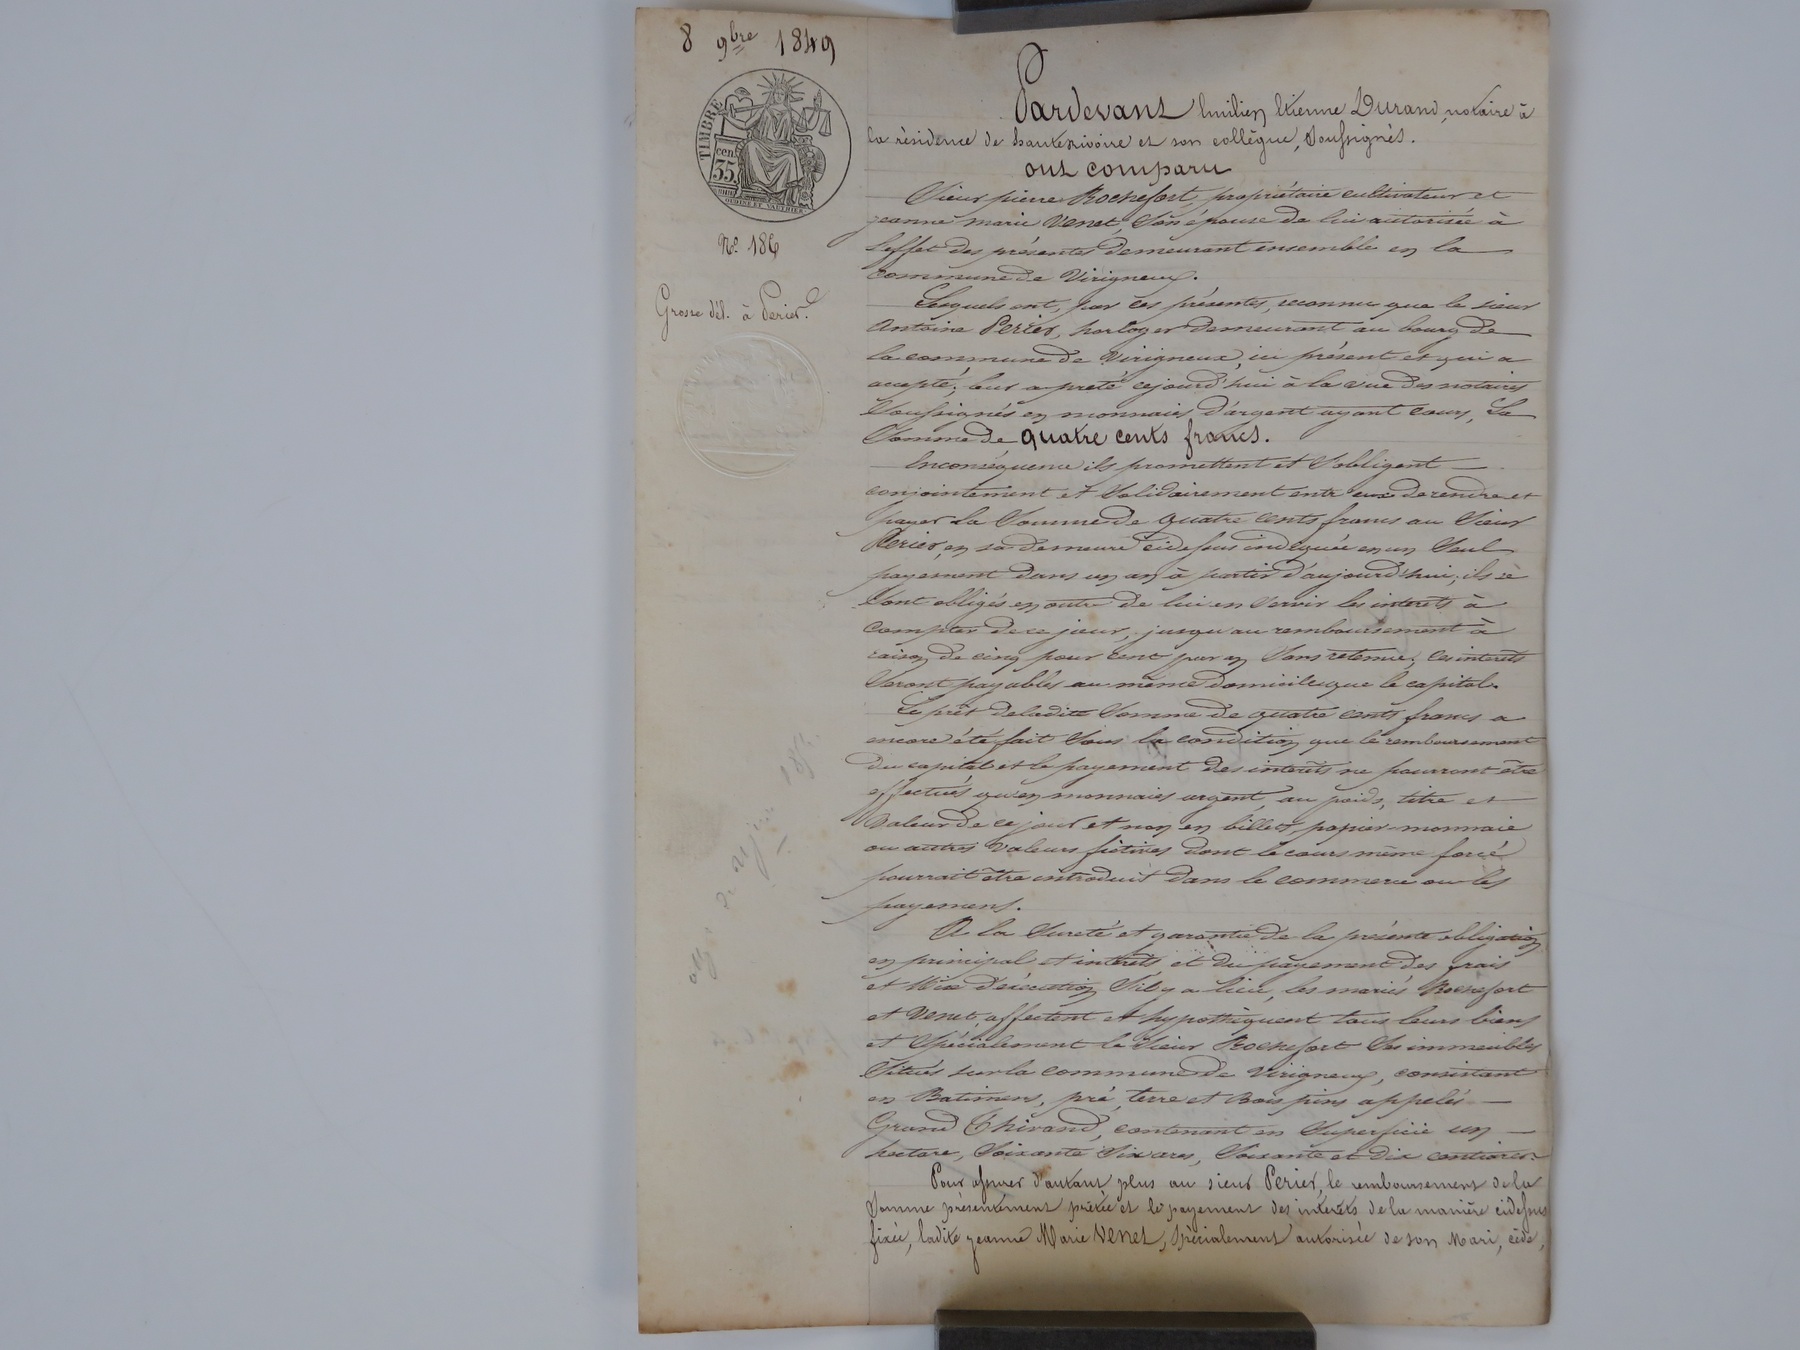 8 9bre 1849
TIMBRE
cen.
35
N° 186
Grosse dél. à Perier.
Pardevant Emilien Etienne Durand, notaire à
la résidence de hauterivoire et son collègue, soussignés.
ont comparu
Sieur pierre Rochefort, propriétaire cultivateur et
jeanne marie Venet, Son épouse de lui autorisée à
l'effet des présentes demeurant ensemble en la
commune de Virigneux.
Lesquels ont, par ces présentes, reconnu que le sieur
Antoine Perier, horloger demeurant au bourg de
la commune de Virigneux, ici présent et qui a
accepté, leur a preté cejourd'hui à la vue des notaires
Soussignés en monnaies d'argent ayant cours, La
Somme de quatre cents francs.
Enconséquence ils promettent et S'obligent
conjointement et Solidairement entr'eux de rendre et
payer la Somme de quatre cents francs au Sieur
Perier, en sa demeure cidessus indiquée en un Seul
payement dans un an à partir d'aujourd'hui; ils se
Sont obligés en outre de lui en Servir les interets à
compter de ce jour, jusqu'au remboursement à
raison de cinq pour cent par an Sans retenue; ces interets
Seront payables au même domicile que le capital.
Le prêt de ladite Somme de quatre cents francs a
encore été fait Sous la condition que le remboursement
du capital et le payement des interets ne pourront être
effectués qu'en monnaies argent, au poids, titre et
Valeur de ce jour et non en billets, papier-monnaie
ou autres Valeurs fictives dont le cours même forcé
pourrait être introduit dans le commerce ou les
payemens.
A la Sureté et garantie de la présente obligation
en principal et interets et du payement des frais
et Mise d'exécution S'il y a lieu, les mariés Rochefort
et Venet affectent et hypothèquent tous leurs biens
et Spécialement le Sieur Rochefort Ses immeubles
Situés sur la commune de Virigneux, consistant
en Batimens, pré, terre et Bois pins appelés
Grand Chirand, contenant en Superficie un
hectare, Soixante Six ares, Soixante et dix centiares.
Pour assurer d'autant plus au sieur Perier, le remboursement de la
Somme présentement prêtée et le payement des interets de la manière cidessus
fixée, ladite jeanne Marie Venet, Spécialement autorisée de son Mari, cède,